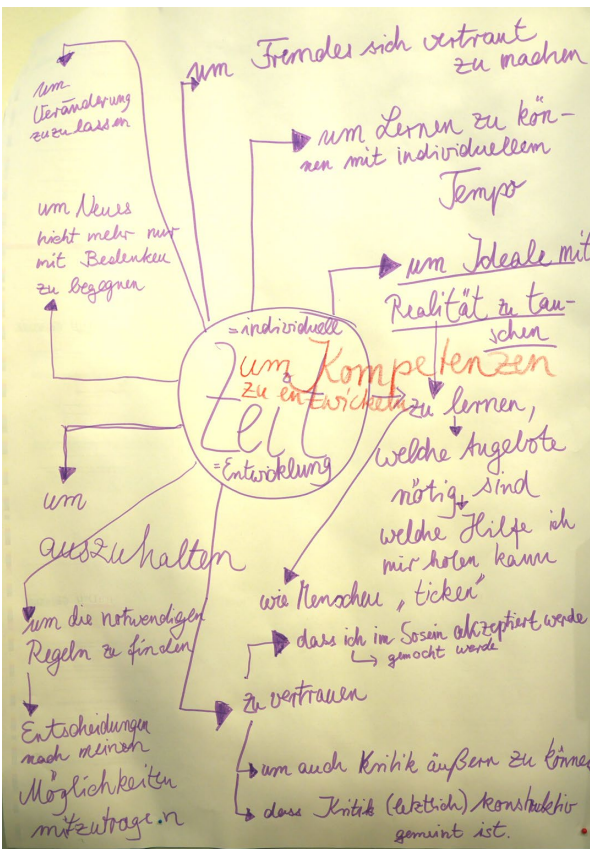 um
Veränderung
zuzulassen
um Fremdes sich vertraut
zu machen
um Lernen zu kön-
nen mit individuellem
Tempo
um Neues
nicht mehr nur
mit Bedenken
zu begegnen
um Ideale mit
Realität zu tau-
schen
= individuell
Zeit
= Entwicklung
um Kompetenzen
zu entwickeln
zu lernen,
welche Angebote
nötig sind
welche Hilfe ich
mir holen kann
wie Menschen „ticken"
um
auszuhalten
um die notwendigen
Regeln zu finden
Entscheidungen
nach meinen
Möglichkeiten
mitzutragen
zu vertrauen
dass ich im Sosein akzeptiert werde
gemocht werde
um auch Kritik äußern zu könne
dass Kritik (letztlich) konstruktiv
gemeint ist.